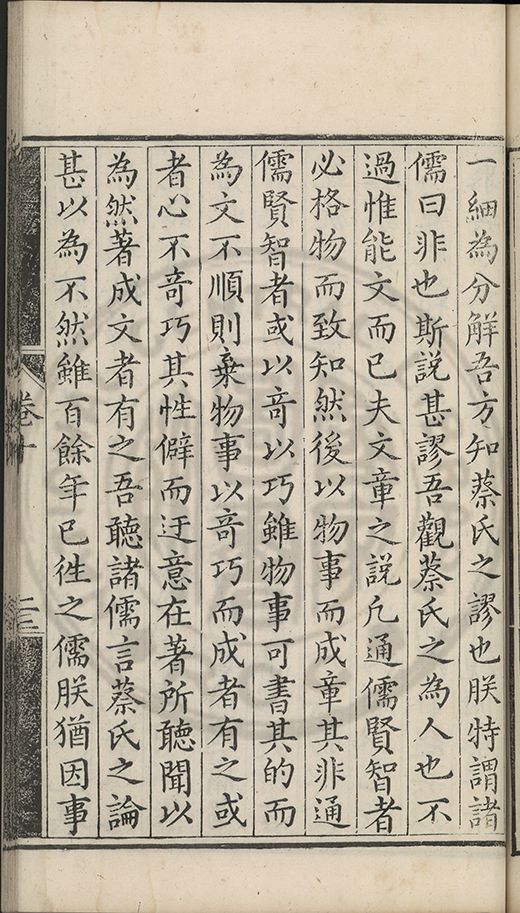 一細為分解吾方知蔡氏之謬也朕特謂諸
儒曰非也斯說甚謬吾觀蔡氏之為人也不
過惟能文而已夫文章之說凡通儒賢智者
必格物而致知然後以物事而成章其非通
儒賢智者或以竒以巧雖物事可書其的而
為文不順則棄物事以竒巧而成者有之或
者心不竒巧其性僻而迂意在著所聽聞以
為然著成文者有之吾聽諸儒言蔡氏之論
甚以為不然雖百餘年已徃之儒朕猶因事
卷十
二三